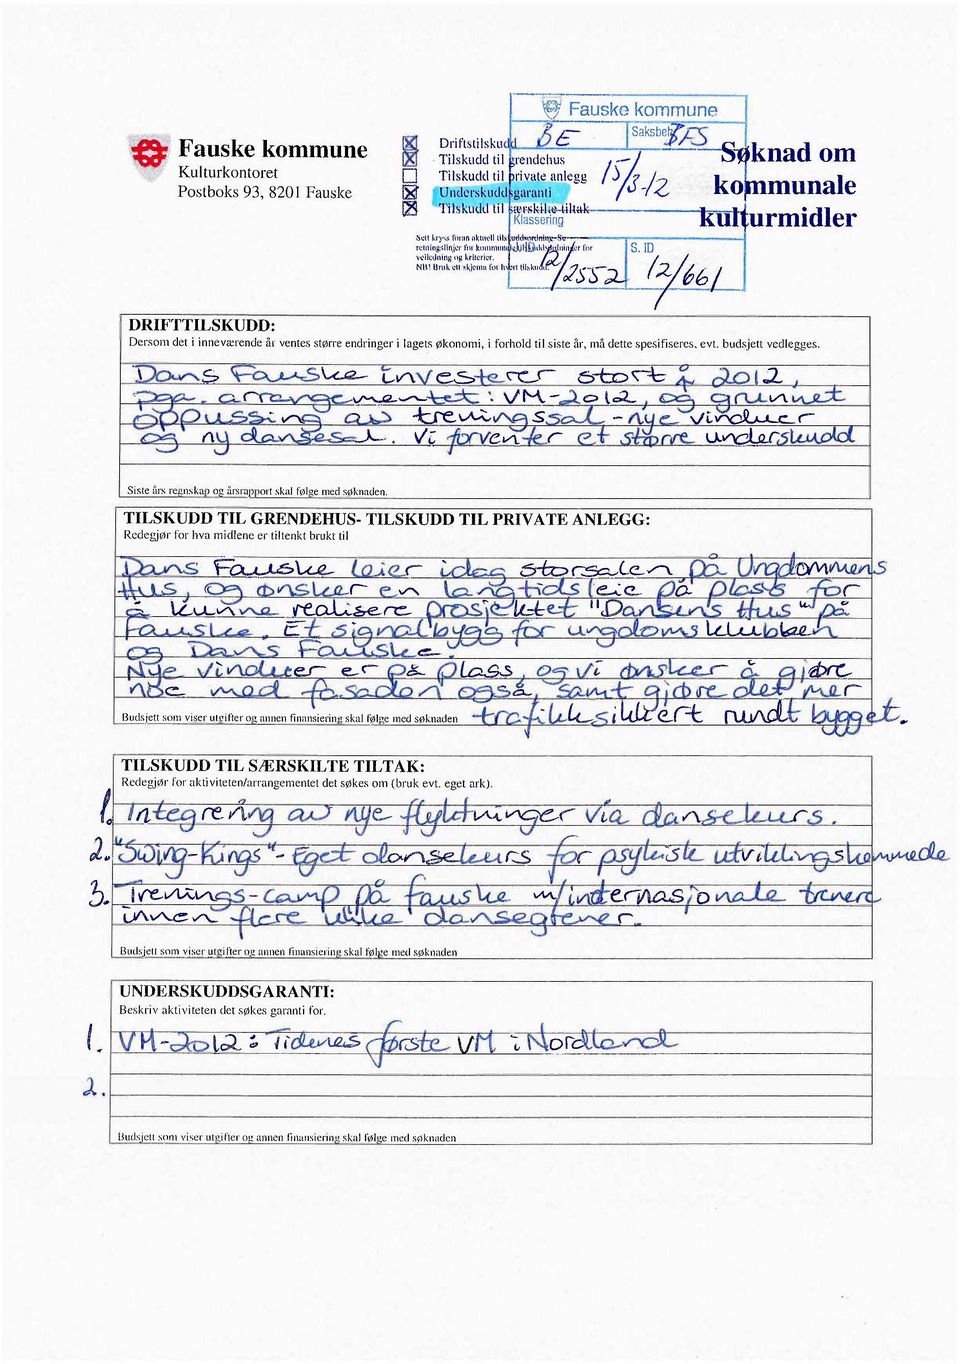 Fauske kommune
Kulturkontoret
Postboks 93, 8201 Fauske
Driftstilskudd
Tilskudd til grendehus
Tilskudd til private anlegg
Underskuddsgaranti
Tilskudd til særskilte tiltak
Sett kryss foran aktuell
NB! Bruk ett skjema for hvert
veiledning og kriterier.
Fauske kommune
BE
Saksbeh
BFS
15/3-12
Klassering
12/2552
S. ID
12/661
Søknad om
kommunale
kulturmidler
DRIFTTILSKUDD:
Dersom det i inneværende år ventes større endringer i lagets økonomi, i forhold til siste år, må dette spesifiseres, evt. budsjett vedlegges.
Dans Fauske investerer stort i 2012,
pga. arrangementet: VM-2012, og grunnet
oppussing av treningssal - nye vinduer
og ny dansesal. Vi forventer et større underskudd
Siste års regnskap og årsrapport skal følge med søknaden.
TILSKUDD TIL GRENDEHUS- TILSKUDD TIL PRIVATE ANLEGG:
Redegjør for hva midlene er tiltenkt brukt til
Dans Fauske leier idag storsalen på Ungdommens
Hus, og ønsker en langtidsleie på plass for
å kunne realisere prosjektet "Dansens Hus" på
Fauske. Et signalbygg for ungdomsklubben
og Dans Fauske.
Nye vinduer er på plass, og vi ønsker å gjøre
noe med fasaden også, samt gjøre det mer
Budsjett som viser utgifter og annen finansiering skal følge med søknaden trafikksikkert rundt bygget.
TILSKUDD TIL SÆRSKILTE TILTAK:
Redegjør for aktiviteten/arrangementet det søkes om (bruk evt. eget ark).
1. Integrering av nye flyktninger via dansekurs.
2. "Swing-Kings" - Eget dansekurs for psykisk utviklingshemmede
3. Trenings-camp på Fauske m/internasjonale trenere
innen flere ulike dansegrener.
Budsjett som viser utgifter og annen finansiering skal følge med søknaden
UNDERSKUDDSGARANTI:
Beskriv aktiviteten det søkes garanti for.
1. VM-2012: Tidenes første VM i Nordland
2.
Budsjett som viser utgifter og annen finansiering skal følge med søknaden